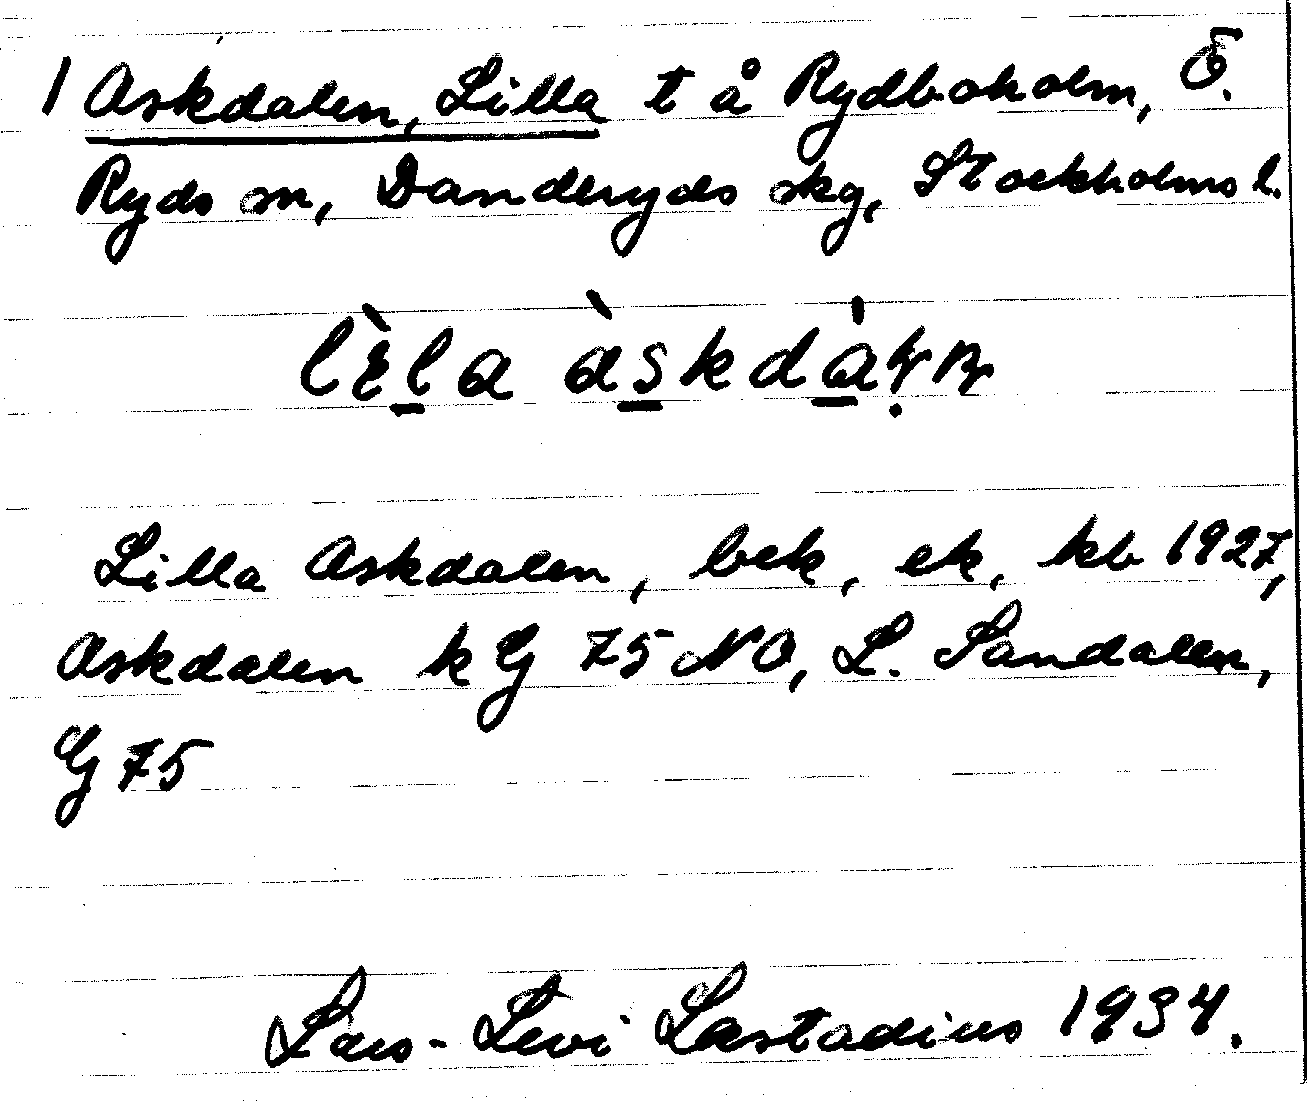 1 Askdalen, Lilla t å Rydboholm, Ö.
Ryds sn, Danderyds skg, Stockholms l.
Lilla Askdalen, bek, ek, kb 1927,
Askdalen k G 75 NO, L. Sandalen,
G 75
Lars-Levi Læstadius 1934.